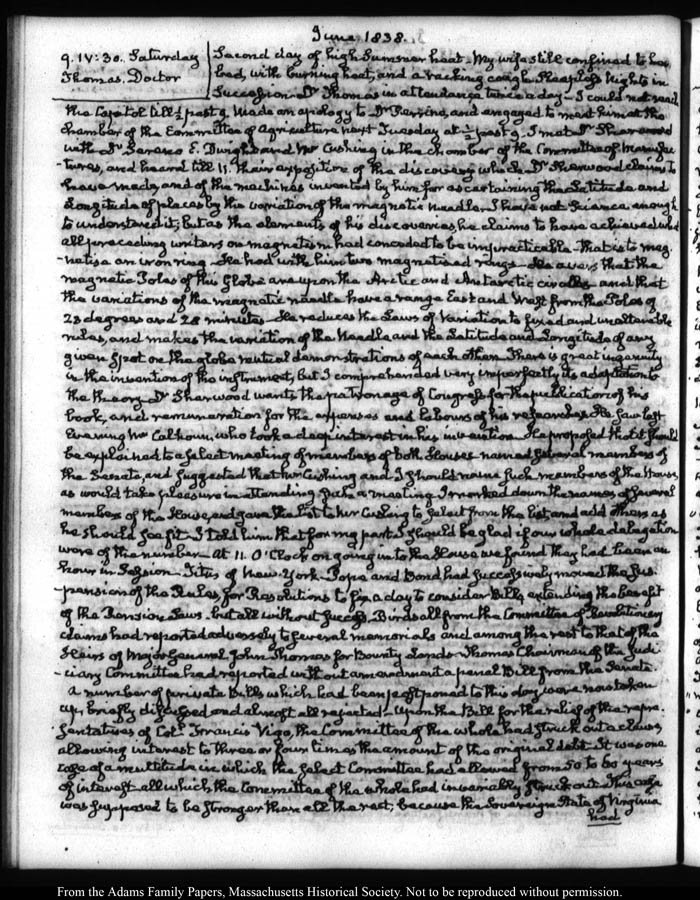 June. 1838.
9. IV: 30. Saturday
Thomas. Doctor
Second day of high Summer heat. My wife still confined to her
bed, with burning heat, and a racking cough. Sleepless Nights in
Succession. Dr Thomas in attendance twice a day. I could not reach
the Capitol till ½ past 9. Made an apology to Dr Perrine, and engaged to meet him at the
Chamber of the Committee of Agriculture next Tuesday at ½ past 9. I met Dr Sherwood
with Dr Sereno E. Dwight and Mr Cushing in the chamber of the Committee of Manufac-
tures, and heard till 11. their exposition of the discovery which Dr Sherwood claims to
have made, and of the machines invented by him for ascertaining the Latitude and
Longitude of places by the variation of the magnetic needle. I have not Science enough
to understand it; but as the elements of his discoveries, he claims to have achieved what
all preceding writers on magnetism had conceded to be impracticable. That is to mag-
-netise an iron ring. He had with him two magnetised rings. He avers that the
magnetic Poles of this Globe are upon the Arctic and Antarctic circles and that
the variations of the magnetic needle have a range East and West from the Poles of
23 degrees and 28 minutes. He reduces the Laws of Variation to fixed and unalterable
rules, and makes the variation of the Needle and the Latitude and Longitude of any
given spot on the globe mutual demonstrations of each other. There is great ingenuity
in the invention of the instrument, but I comprehended very imperfectly its adaptation to
the theory. Dr Sherwood wants the patronage of Congress for the publication of his
book, and remuneration for the expenses and labours of his researches. He saw last
Evening Mr Calhoun, who took a deep interest in his invention. He proposed that it should
be explained to a select meeting of members of both Houses named several members of
the Senate, and suggested that Mr Cushing and I should name such members of the House,
as would take pleasure in attending such a meeting. I marked down the names of several
members of the House, and gave the list to Mr Cushing to select from the list and add others as
he should see fit. I told him that for my part I should be glad if our whole delegation
were of the number. At 11. O'Clock on going into the House we found they had been an
hour in Session. Titus of New-York. Pope and Bond had successively moved the sus-
-pension of the Rules, for Resolutions to fix a day to consider Bills extending the benefit
of the Pension Laws. but all without success. Birdsall from the Committee of Revolutionary
claims had reported adversely to several memorials and among the rest to that of the
Heirs of Major General John Thomas for Bounty Lands. Thomas Chairman of the Judi-
-ciary Committee had reported without amendment a penal Bill from the Senate.
A number of private Bills which had been postponed to this day were now taken
up, briefly discussed and almost all rejected. Upon the Bill for the relief of the repre-
-sentatives of Coll. Francis Vigo, the Committee of the whole had struck out a clause,
allowing interest to three or four times the amount of the original debt. It was one
case of a multitude in which the select Committee had allowed from 50 to 60 years
of interest all which the Committee of the whole had invariably struck out. This case
was supposed to be stronger than all the rest, because the sovereign State of Virginia
had
From the Adams Family Papers, Massachusetts Historical Society. Not to be reproduced without permission.